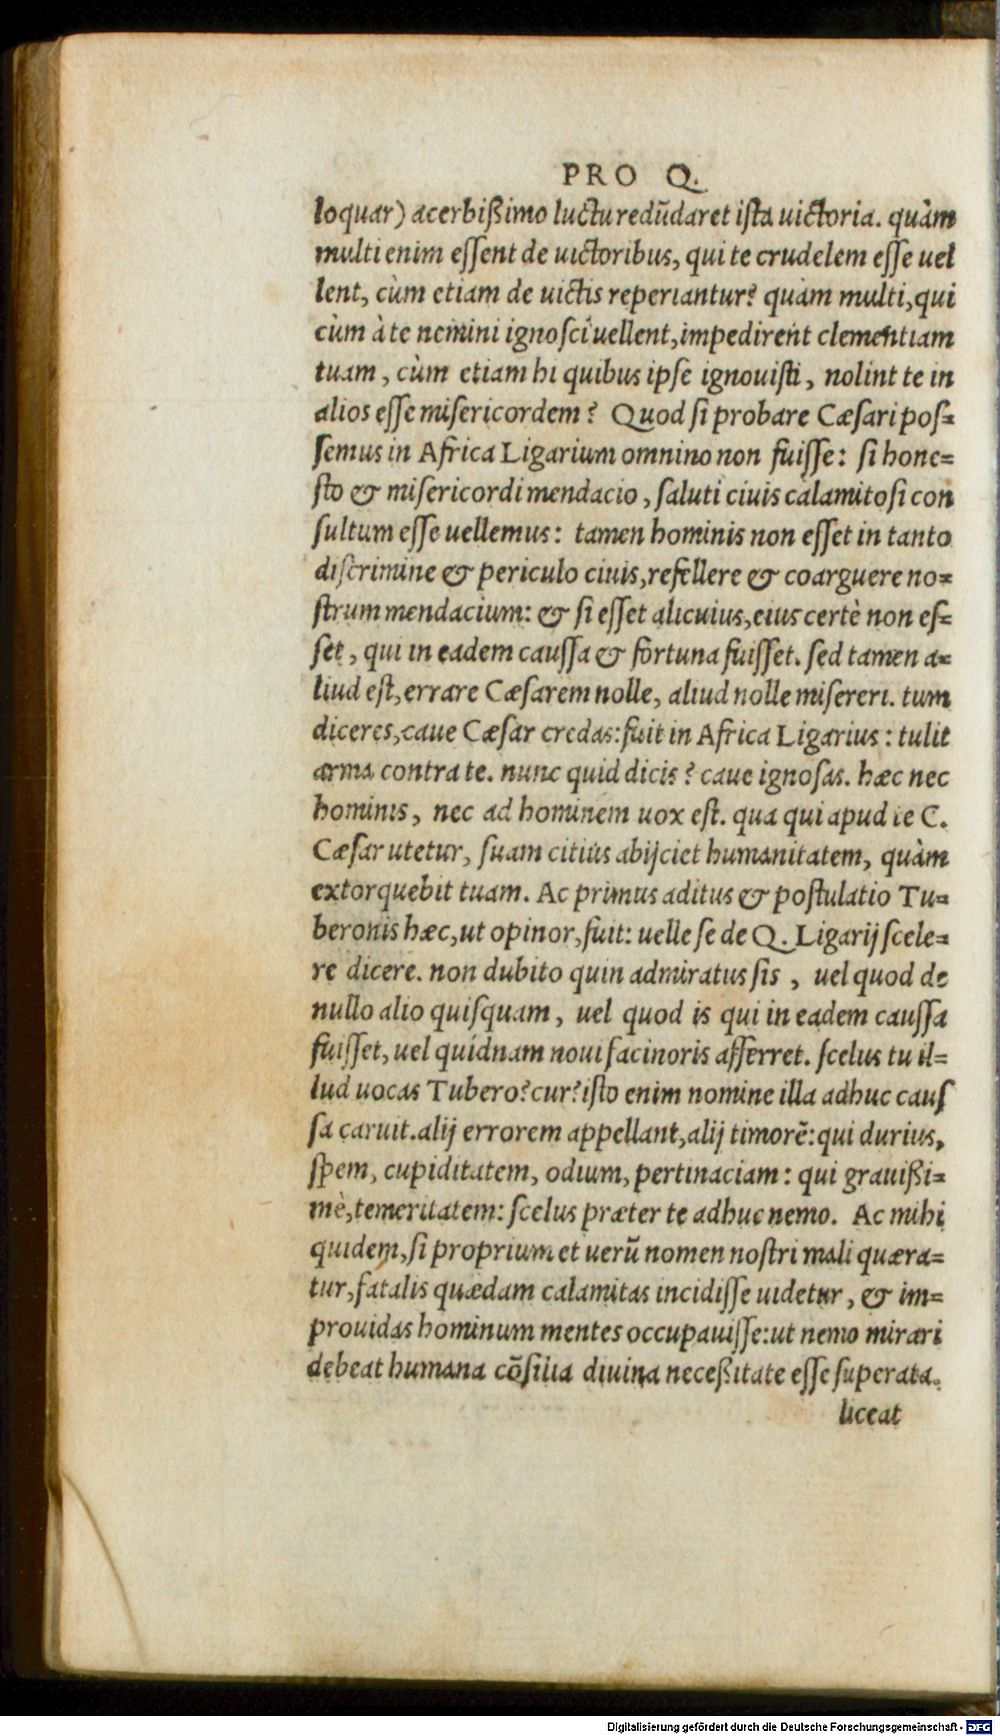 PRO Q.
loquar) acerbißimo luctu redūdaret ista uictoria. quàm
multi enim essent de uictoribus, qui te crudelem esse uel
lent, cùm etiam de uictis reperiantur? quàm multi, qui
cùm à te nemini ignosci uellent, impedirent clementiam
tuam, cùm etiam hi quibus ipse ignouisti, nolint te in
alios esse misericordem? Quod si probare Cæsari pos=
semus in Africa Ligarium omnino non fuisse: si hone=
sto & misericordi mendacio, saluti ciuis calamitosi con
sultum esse uellemus: tamen hominis non esset in tanto
discrimine & periculo ciuis, refellere & coarguere no=
strum mendacium: & si esset alicuius, eius certè non es=
set, qui in eadem caussa & fortuna fuisset. sed tamen a=
liud est, errare Cæsarem nolle, aliud nolle misereri. tum
diceres, caue Cæsar credas: fuit in Africa Ligarius: tulit
arma contra te. nunc quid dicis? caue ignosas. hæc nec
hominis, nec ad hominem uox est. qua qui apud te C.
Cæsar utetur, suam citius abijciet humanitatem, quàm
extorquebit tuam. Ac primus aditus & postulatio Tu=
beronis hæc, ut opinor, fuit: uelle se de Q. Ligarij scele=
re dicere. non dubito quin admiratus sis, uel quod de
nullo alio quisquam, uel quod is qui in eadem caussa
fuisset, uel quidnam noui facinoris afferret. scelus tu il=
lud uocas Tubero? cur? isto enim nomine illa adhuc caus
sa caruit. alij errorem appellant, alij timorē: qui durius,
spem, cupiditatem, odium, pertinaciam: qui grauißi=
mè, temeritatem: scelus præter te adhuc nemo. Ac mihi
quidem, si proprium et uerū nomen nostri mali quæra=
tur, fatalis quædam calamitas incidisse uidetur, & im=
prouidas hominum mentes occupauisse: ut nemo mirari
debeat humana cōsilia diuina neceßitate esse superata.
liceat
Digitalisierung gefördert durch die Deutsche Forschungsgemeinschaft - DFG